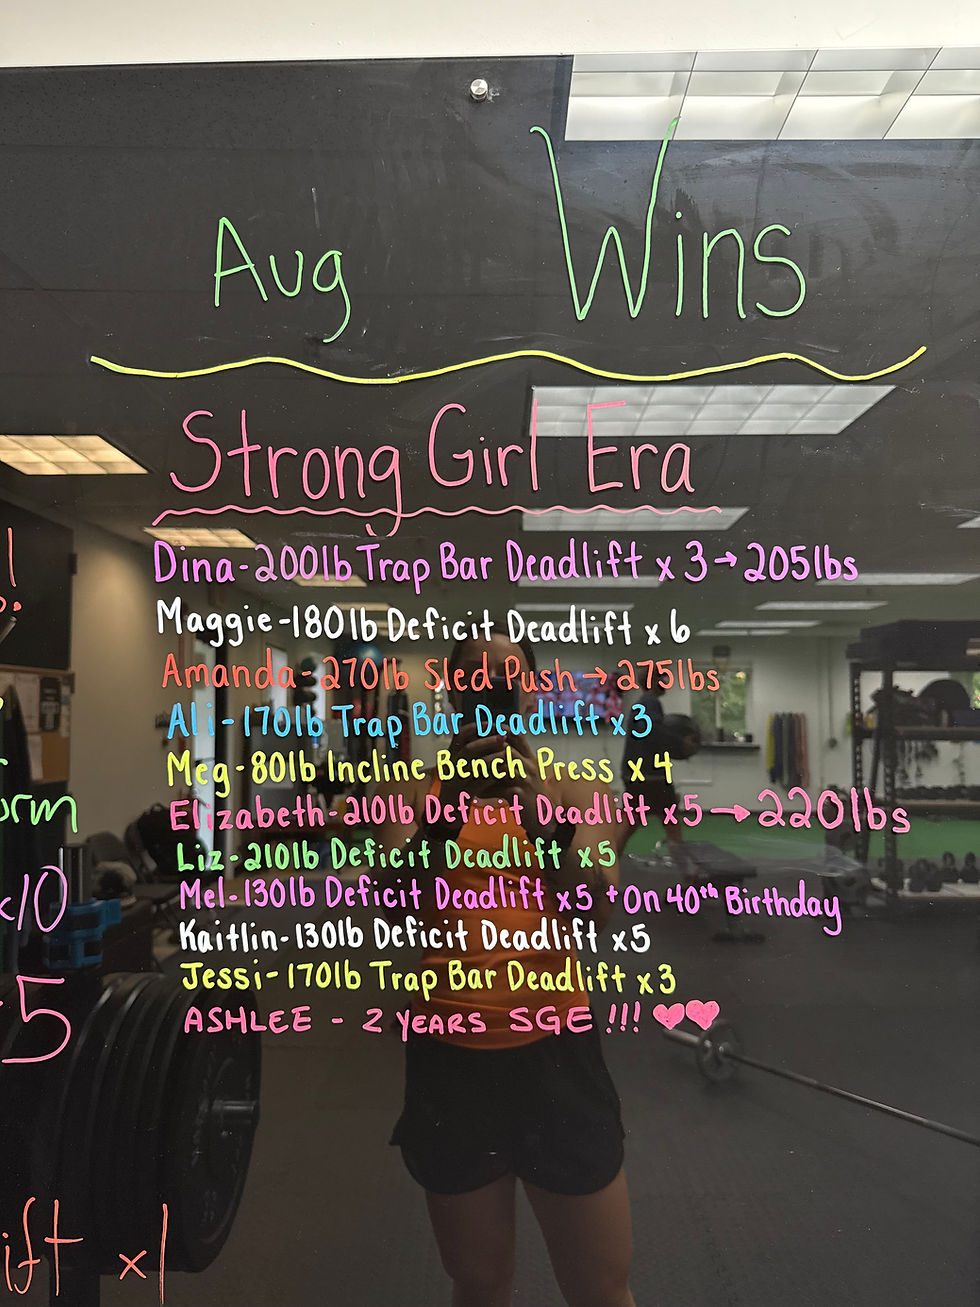 Aug Wins
Strong Girl Era
Dina-200lb Trap Bar Deadlift x 3→205lbs
Maggie-180lb Deficit Deadlift x 6
Amanda-270lb Sled Push→275lbs
Ali-170lb Trap Bar Deadlift x3
Meg-80lb Incline Bench Press x 4
Elizabeth-210lb Deficit Deadlift x5→220lbs
Liz-210lb Deficit Deadlift x5
Mel-130lb Deficit Deadlift x5 +On 40th Birthday
Kaitlin-130lb Deficit Deadlift x5
Jessi-170lb Trap Bar Deadlift x3
ASHLEE - 2 YEARS SGE!!! ♥♥
x10
5
ift x1